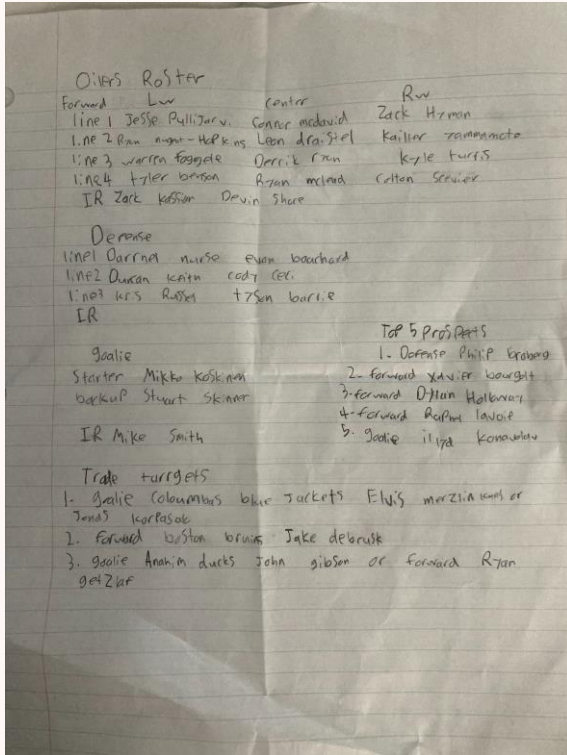 Oilers Roster
Forward Lw Center Rw
line 1 Jesse Pulljarvi Connor mcdavid Zack Hyman
line 2 Ryan nugent-Hopkins Leon draistel Kailler yamenmoto
line 3 warren foggele Derrik ryan kyle turris
line 4 tyler benson Ryan mcleod Colton Scevier
IR Zack kassian Devin Shore
Defense
line1 Darrnel nurse evan bouchard
line2 Duncan Keith cody ceci
line3 kris Russel tyson barrie
IR
goalie
Starter Mikko Koskinen
backup Stuart Skinner
IR Mike Smith
Top 5 Prospects
1- Defense Philip broberg
2- forward Xavier bourgolt
3- forward Dylan Holloway
4- forward Raphel lavoie
5. goalie ilyd konavalav
Trade turrgets
1- goalie Coloumbas blue Jackets Elvis merzlinkans or
Jonas korpasolo
2. forward boston bruins Jake debrusk
3. goalie Anahim ducks John gibson or forward Ryan
getzlaf